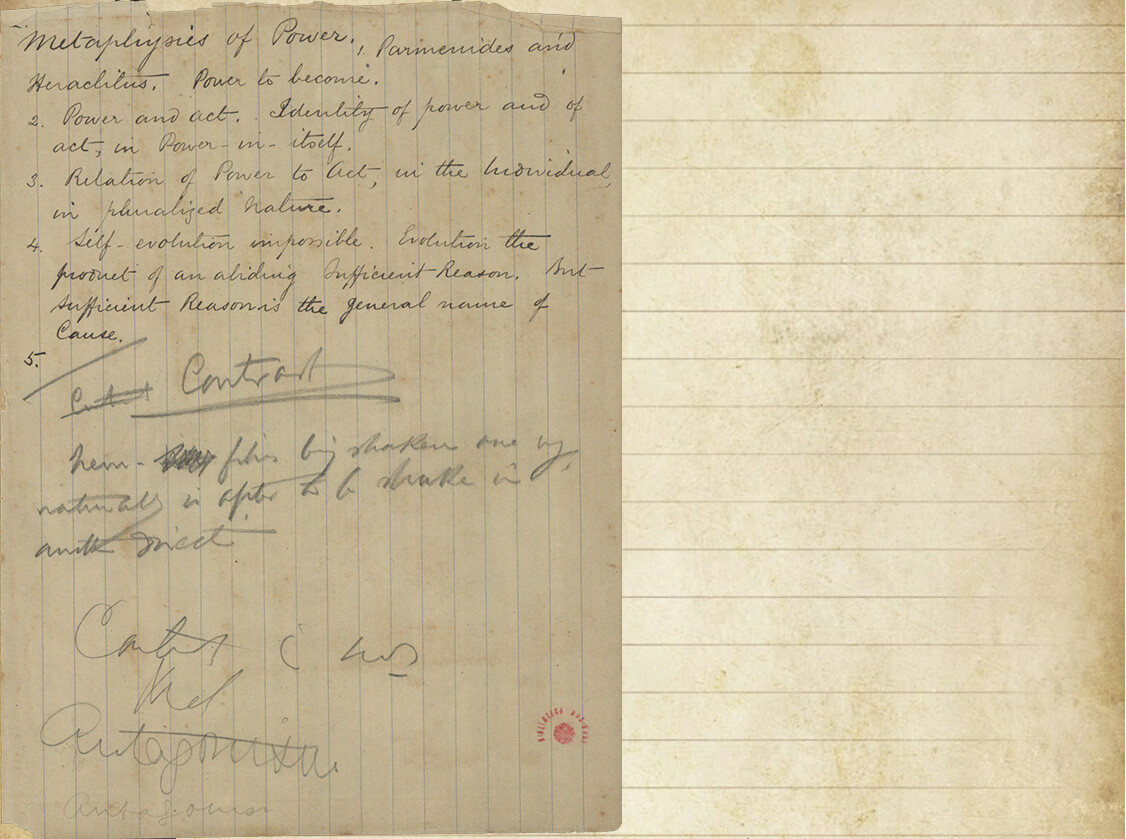 Metaphysics of Power. 1. Parmenides and
Heraclitus. Power to become.
2. Power and act. Identity of power and of
act, in Power-in-itself.
3. Relation of Power to Act, in the Individual,
in pluralized nature.
4. Self-evolution impossible. Evolution the
product of an abiding Sufficient Reason. But
Sufficient Reason is the general name of
Cause.
5.
Contrast
shaken one way
naturally is to be shake in
Antagonism
Antagonism